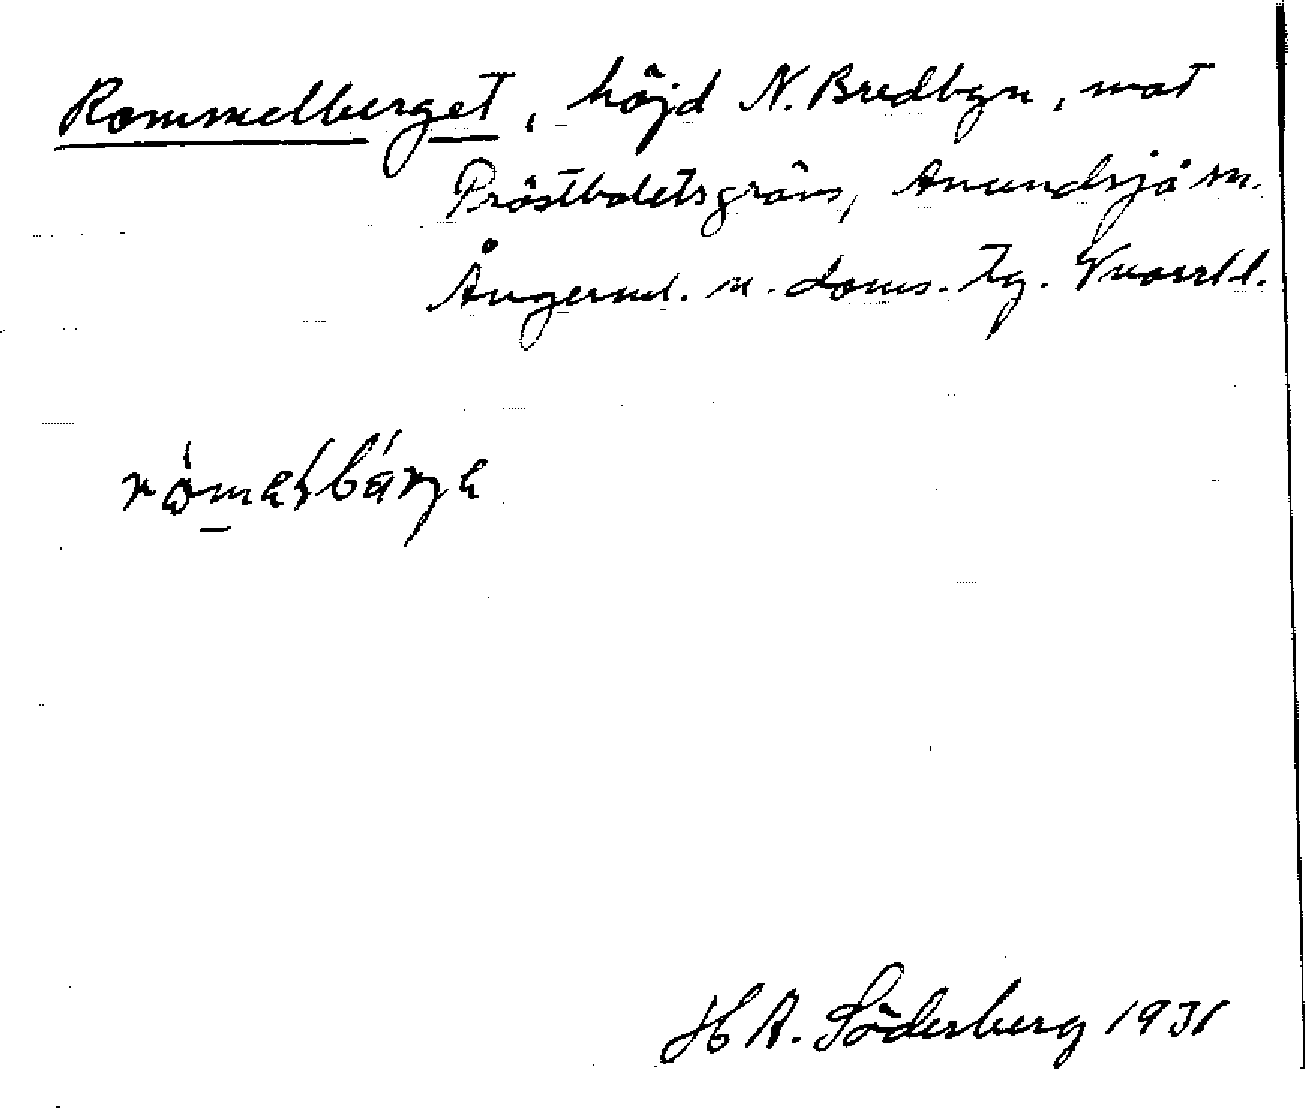 Rommelberget, höjd N. Bredbyn, mot
Prästbolets gräns, Anundsjö sn.
Ångerml. n. doms. Tg. Vnorrl l.
H A. Söderberg 1931